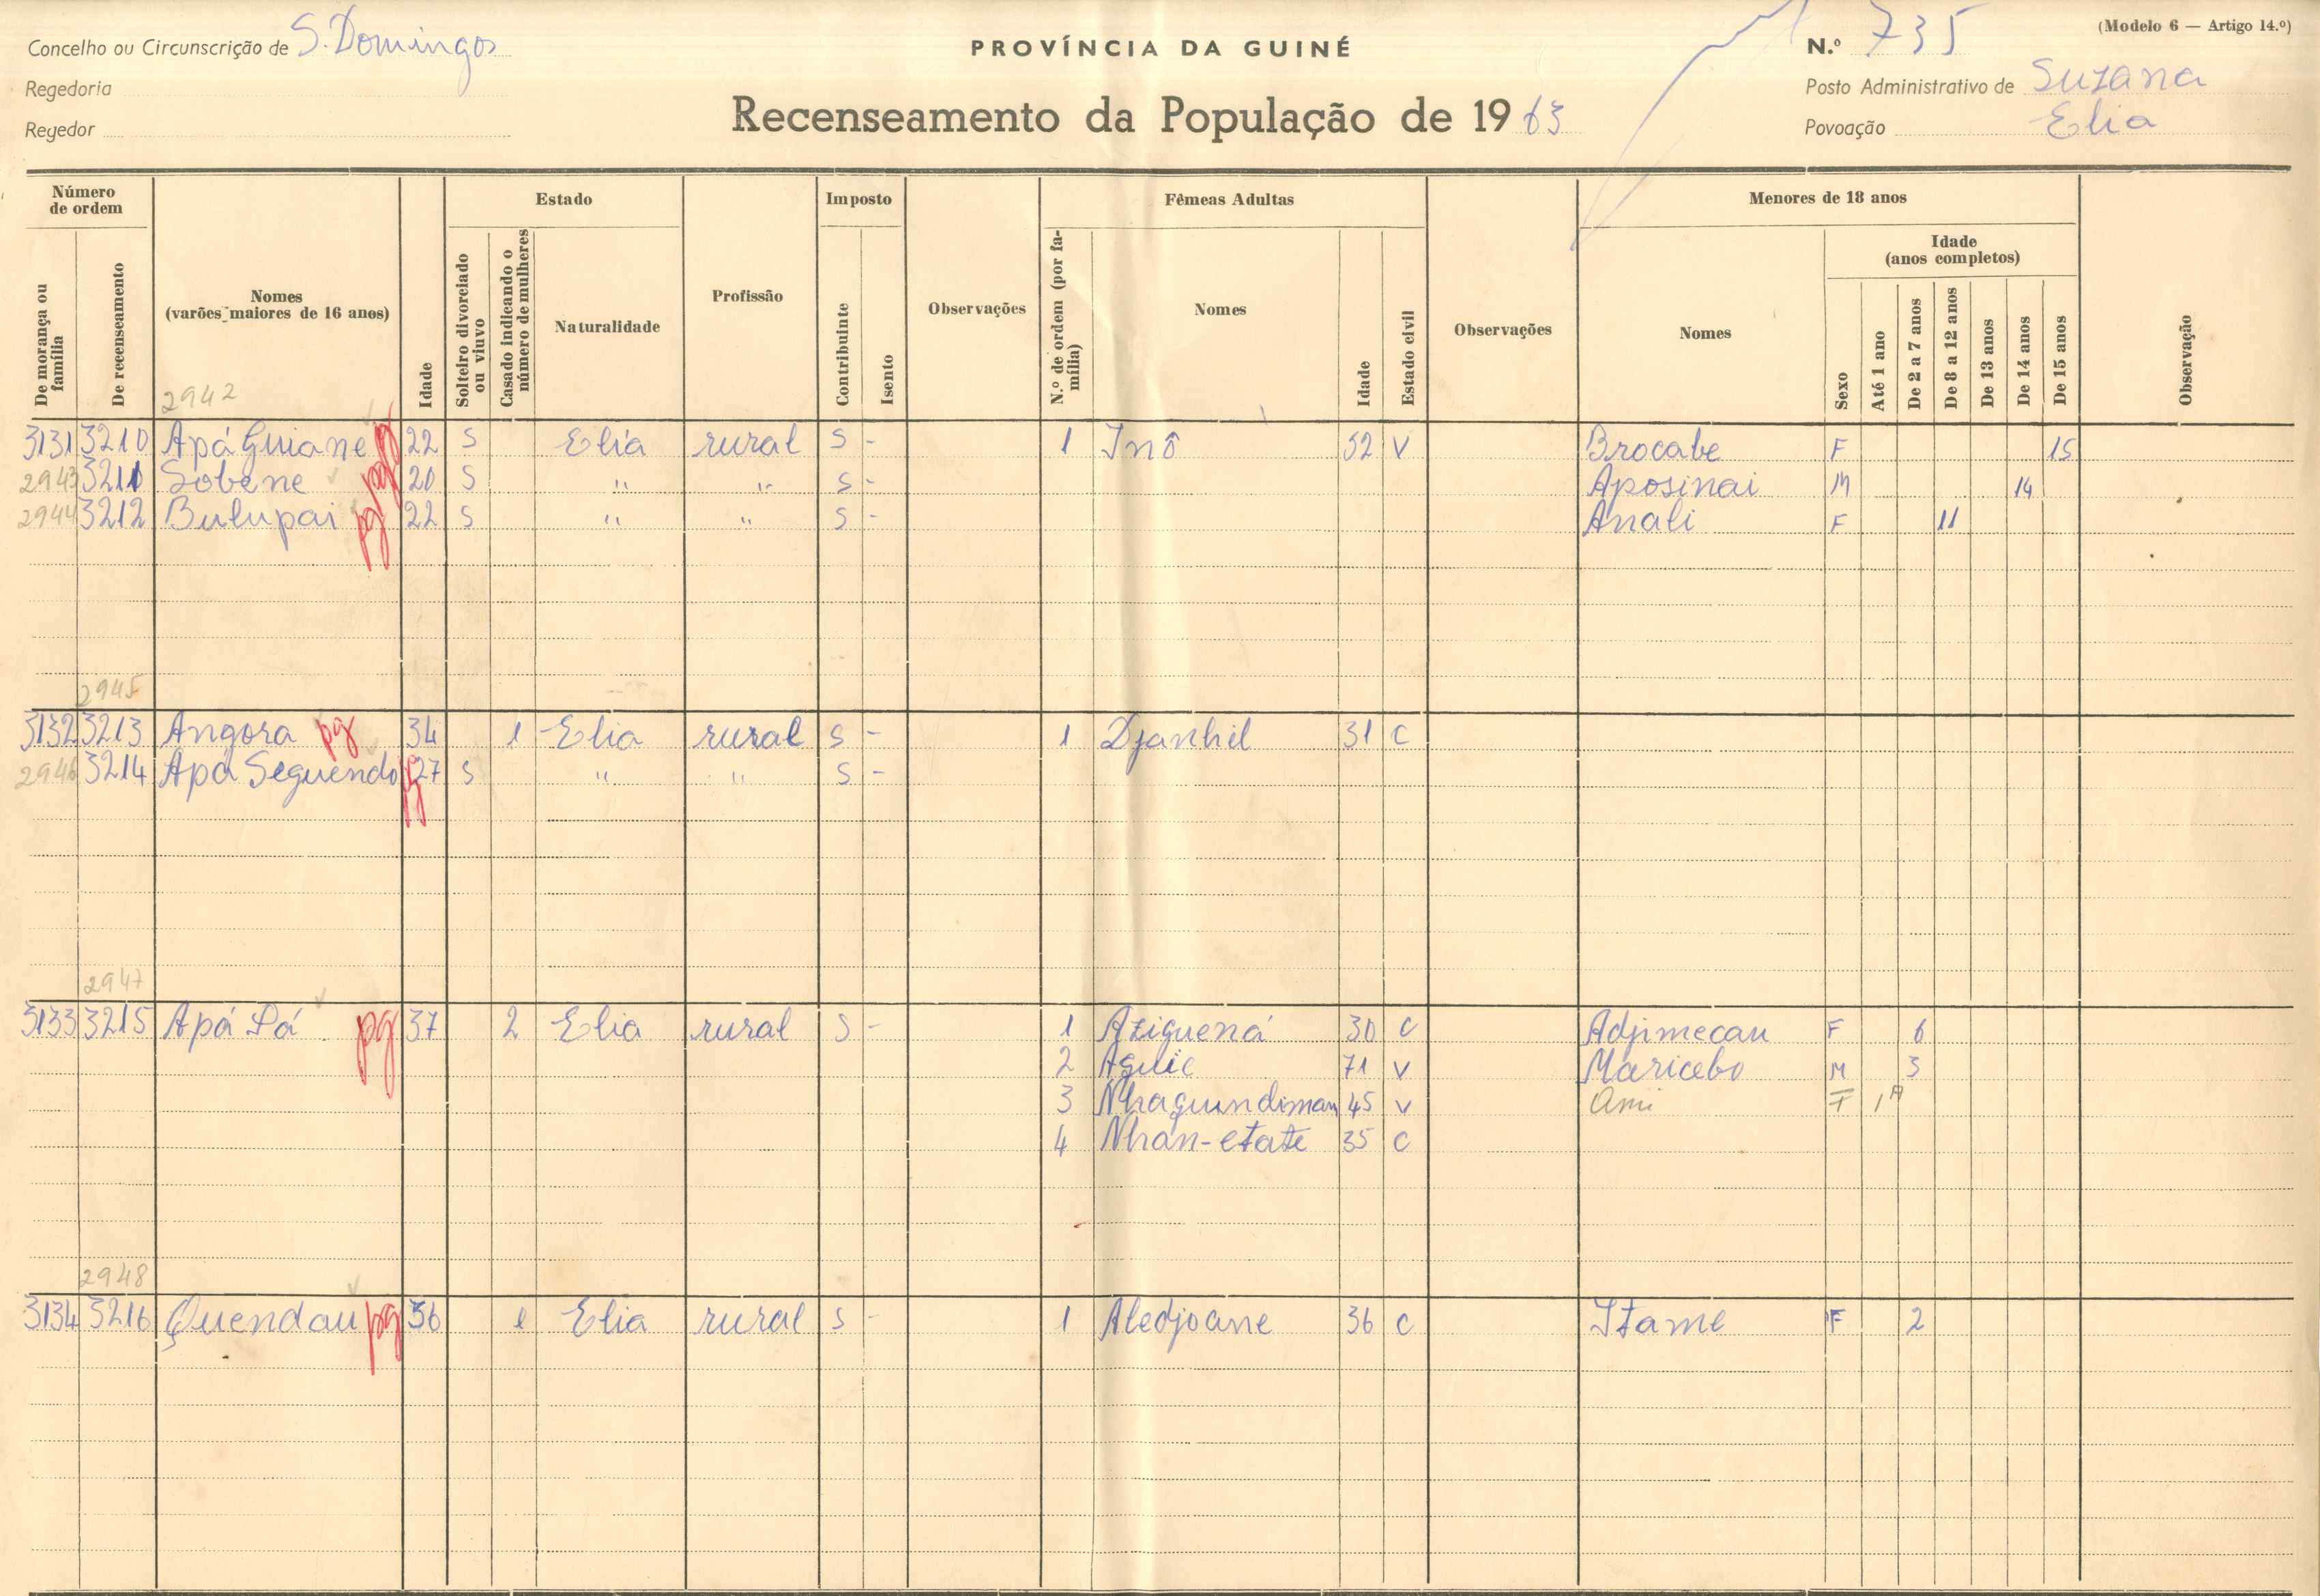 (Modelo 6 — Artigo 14.º)
Concelho ou Circunscrição de S. Domingos
PROVÍNCIA DA GUINÉ
N.º 735
Regedoria
Posto Administrativo de Suzana
Regedor
Recenseamento da População de 1963
Povoação Elia
Número de ordem
De morança ou família
De recenseamento
Nomes
(varões maiores de 16 anos)
Idade
Estado
Solteiro divorciado ou viuvo
Casado indicando o número de mulheres
Naturalidade
Profissão
Imposto
Contribuinte
Isento
Observações
Fêmeas Adultas
N.º de ordem (por família)
Nomes
Idade
Estado civil
Observações
Menores de 18 anos
Nomes
Sexo
Idade
(anos completos)
Até 1 ano
De 2 a 7 anos
De 8 a 12 anos
De 13 anos
De 14 anos
De 15 anos
Observação
2942
3131 3210 Apá Guiane pg 22 S Elia rural S - 1 Inô 52 V Brocabe F 15
2943 3211 Sobene pg 20 S " " S - Aposinai M 14
2944 3212 Bulupai pg 22 S " " S - Anali F 11
2945
3132 3213 Angora pg 34 1 Elia rural S - 1 Djanhil 31 C
2946 3214 Apá Seguendo pg 27 S " " S -
2947
3133 3215 Apá Lá pg 37 2 Elia rural S - 1 Aziguená 30 C Adjimecau F 6
2 Aguic 71 V Maricebo M 3
3 Nhagundiman 45 V Ami F 1A
4 Nhan-etate 35 C
2948
3134 3216 Quendau pg 36 1 Elia rural S - 1 Aledjoane 36 C Itame F 2